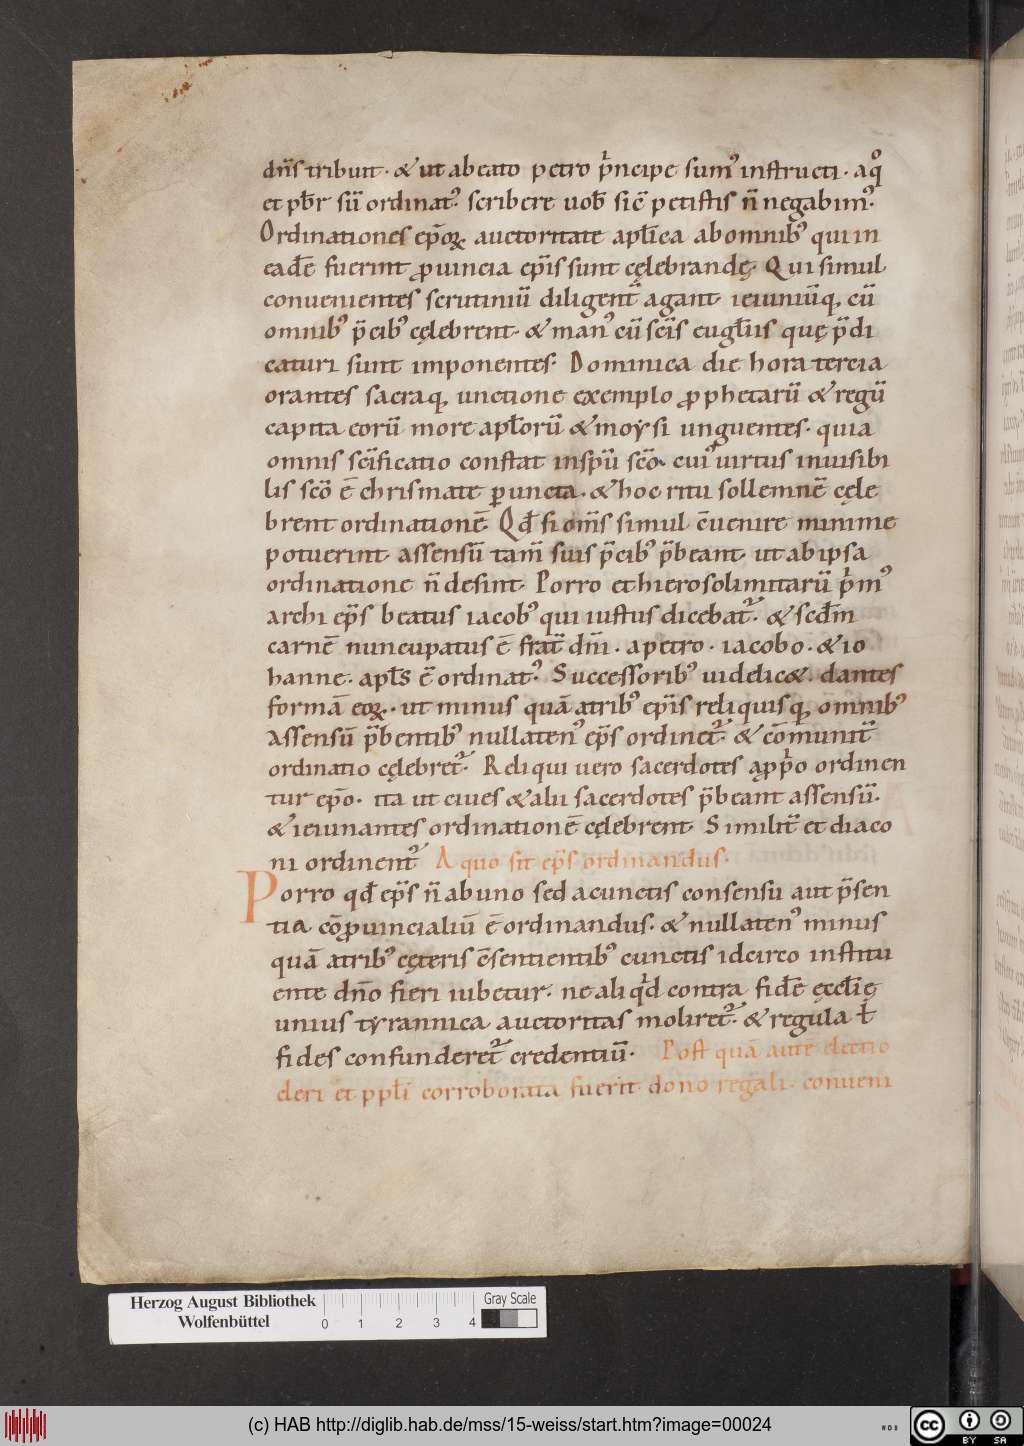 dn̄s tribuit · & ut a beato petro pͥncipe sumꝰ instructi · a qͦ
et pb̄r sū ordinatꝰ · scribere uob̄ sic̄ petistis n̄ negabimꝰ ·
Ordinationes ep̄oꝝ auctoritate apl̄ica ab omnibꝰ qui in
ead̄e fuerint ꝓuincia ep̄is sunt cęlebrandę · Qui simul
conuenientes scrutiniū diligent̄ agant ieiuniūq, cū
omnibꝰ p̄cibꝰ cęlebrent · & manꝰ cū sc̄is eugl̄iis quę p̄di
caturi sunt imponentes · Dominica die hora tercia
orantes sacraq, unctione exemplo ꝓphetarū & regū
capita eorū more apl̄orū & moẏsi unguentes · quia
omnis sc̄ificatio constat in sp̄u sc̄o · cuiꝰ uirtus inuisibi
lis sc̄o ē chrismate ꝑuncta · & hoc ritu sollemnē cęle
brent ordinationē · Qd̄ si om̄s simul c̄uenire minime
potuerint · assensū tam̄ suis p̄cibꝰ p̄beant ut ab ipsa
ordinatione n̄ desint · Porro et hierosolimitarū pͥmꝰ
archi ep̄s beatus iacobꝰ qui iustus dicebat᷑ · & scd̄m
carnē nuncupatus ē frat̄ dn̄i · a petro · iacobo · & io
hanne · apl̄s ē ordinatꝰ · Successoribꝰ uidelic& · dantes
formā eoꝝ · ut minus quā a tribꝰ ep̄is reliquisq, omnibꝰ
Assensū p̄bentibꝰ nullatenꝰ ep̄s ordinet᷑ · & cōmunit̄
ordinatio cęlebret᷑ · Reliqui uero sacerdotes ą ppͥo ordinen
tur ep̄o · ita ut ciues & alii sacerdotes p̄beant assensū ·
& ieiunantes ordinationē cęlebrent · Similit̄ et diaco
ni ordinent᷑ A quo sit ep̄s ordinandus ·
Porro qd̄ ep̄s n̄ ab uno sed a cunctis consensu aut p̄sen
tia cōꝓuincialiū ē ordinandus · & nullatenꝰ minus
quā a tribꝰ cęteris c̄sentientibꝰ cunctis idcirco institu
ente dn̄o fieri iubetur · ne aliqͥd contra fid̄e ęccl̄ię
unius tẏrannica auctoritas moliret᷑ · & regula ł
fides confunderet᷑ credentiū · Post quā autē electio
cleri et ppl̄i corroborata fuerit dono regali · conueni
Herzog August Bibliothek
Wolfenbüttel
0 1 2 3 4
Gray Scale
(c) HAB http://diglib.hab.de/mss/15-weiss/start.htm?image=00024
cc
BY SA